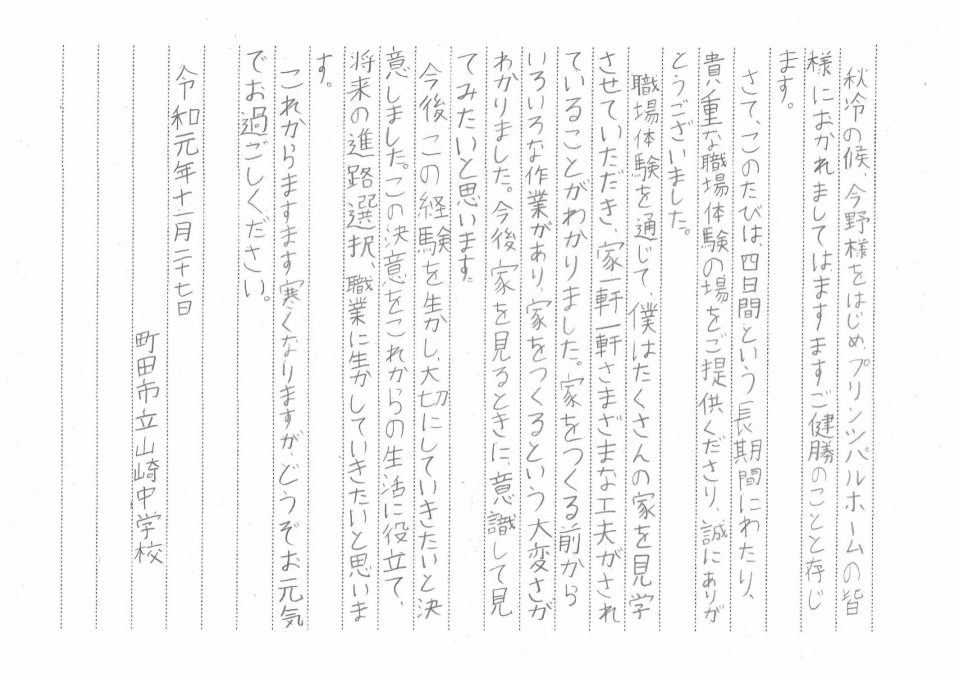 秋冷の候、今野様をはじめ、プリンシパルホームの皆
様におかれましてはますますご健勝のことと存じ
ます。
さて、このたびは、四日間という長期間にわたり、
貴重な職場体験の場をご提供くださり、誠にありが
とうございました。
職場体験を通じて、僕はたくさんの家を見学
させていただき、家一軒一軒さまざまな工夫がされ
ていることがわかりました。家をつくる前から
いろいろな作業があり、家をつくるという大変さが
わかりました。今後家を見るときに、意識して見
てみたいと思います。
今後この経験を生かし、大切にしていきたいと決
意しました。この決意をこれからの生活に役立て、
将来の進路選択、職業に生かしていきたいと思いま
す。
これからますます寒くなりますが、どうぞお元気
でお過ごしください。
令和元年十一月二十七日
町田市立山崎中学校